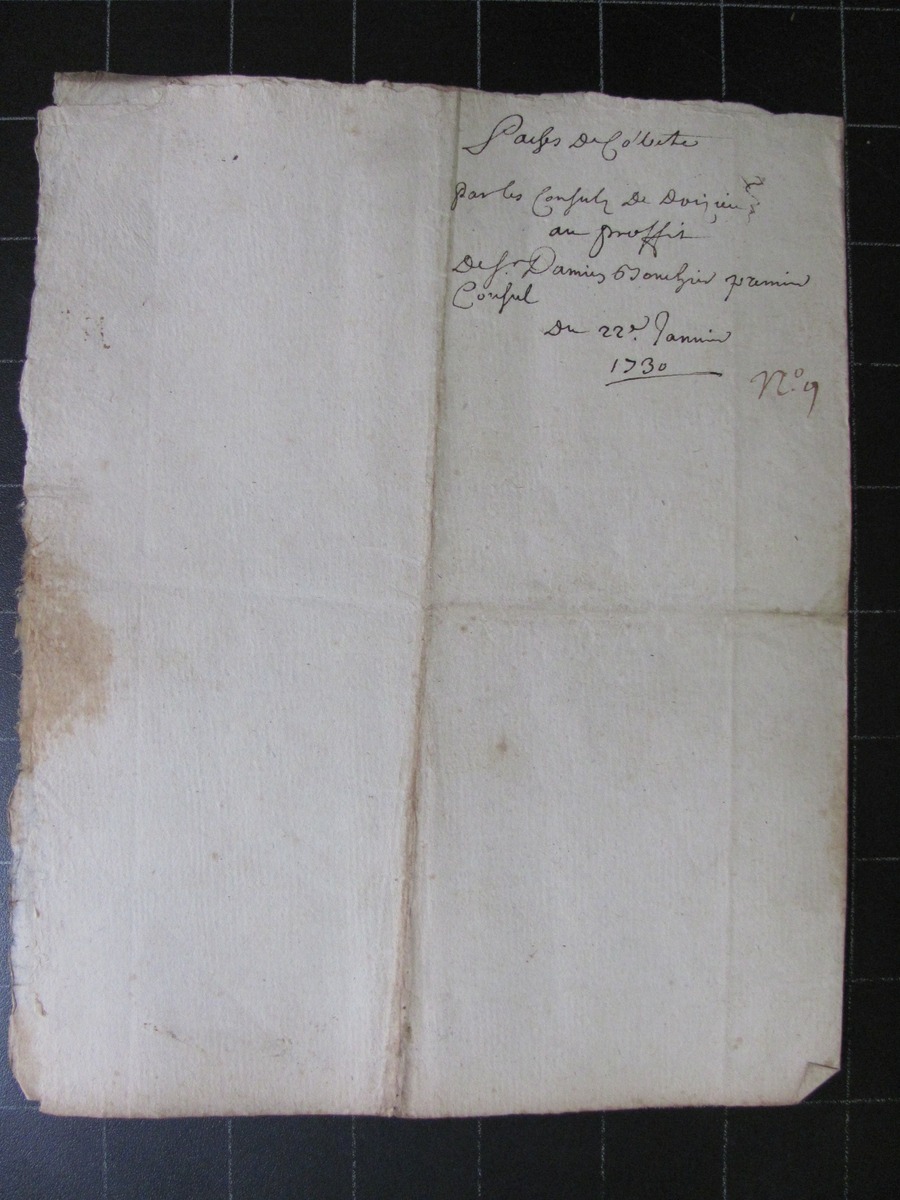 Pactes De Cóllecte
par les Consulz De
au proffit
De Sr. Damien premier
Consul
Du 22e. Janvier
1730
No. 9